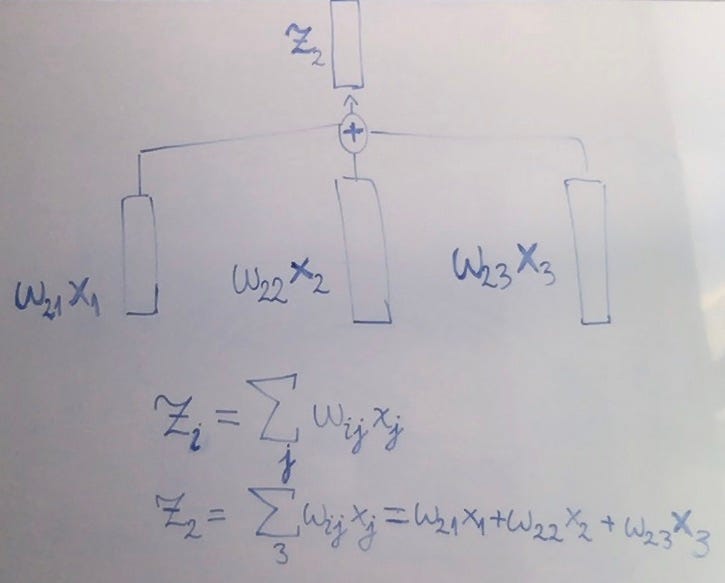 Z₂
+
w₂₁x₁ w₂₂x₂ w₂₃x₃
Zᵢ = ∑ⱼ wᵢⱼxⱼ
Z₂ = ∑₃ wᵢⱼxⱼ = w₂₁x₁+w₂₂x₂ + w₂₃x₃